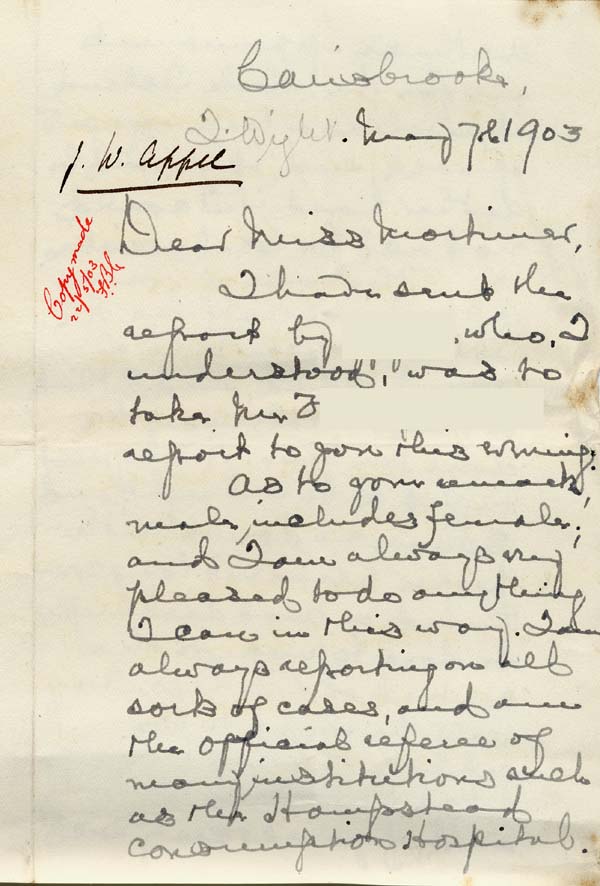 Carisbrooke,
I. Wight. May 7th 1903
J. W. Appel
Copy made
22/5/03
Dear Miss Mortimer,
I have sent the
report by , who, I
understood, "was to
take Mr F
report to you this evening.
As to your remark,
male, includes female,
and I am always very
pleased to do anything
I can in this way. I am
always reporting on all
sorts of cases, and am
the official referee of
many institutions such
as the Hampstead
Consumption Hospital.